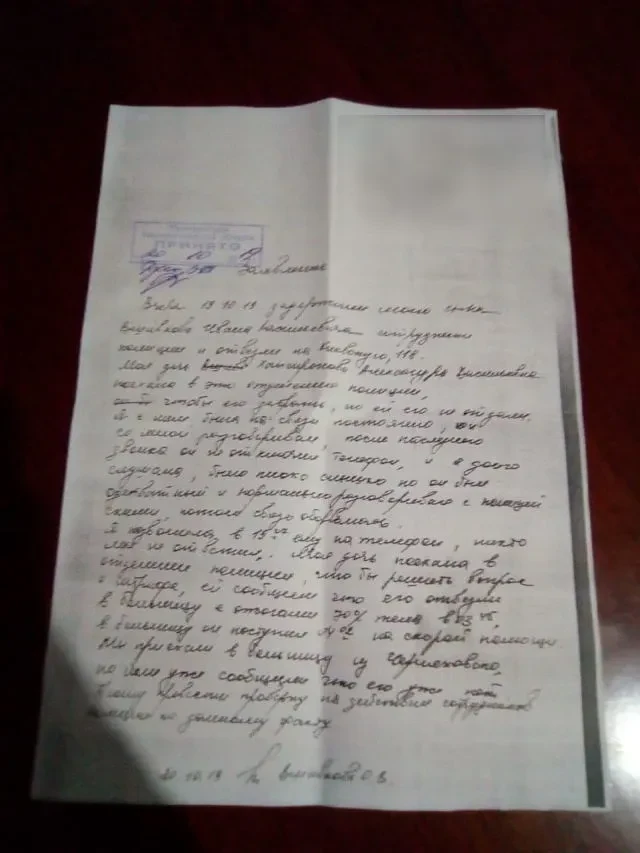 ПРИНЯТО
20 10 19
Заявление
Вчера 19.10.19 задержали моего сына
Вшивкова Ивана сотрудники
полиции и отвезли на Киевскую, 118.
Моя дочь Александра Васильевна
поехала в это отделение полиции,
чтобы его забрать, но ей его не отдали.
Я с ним была на связи постоянно, он
со мной разговаривал, после последнего
звонка он не отключил телефон, и я долго
слушала, было плохо слышно но он был
адекватный и нормально разговаривал с полицей
скими, потом связь оборвалась.
Я позвонила в ему на телефон, никто
мне не ответил. Моя дочь поехала в
отделение полиции, что бы решить вопрос
о штрафе, ей сообщили что его отвезли
в больницу с ожогами 70% тела в 03 45,
в больницу он поступил на скорой помощи.
Мы приехали в больницу из Черняховска,
но нам уже сообщили что его уже нет
Прошу провести проверку на действие сотрудников
полиции по данному факту
20.10.19 Вшивкова О.В.